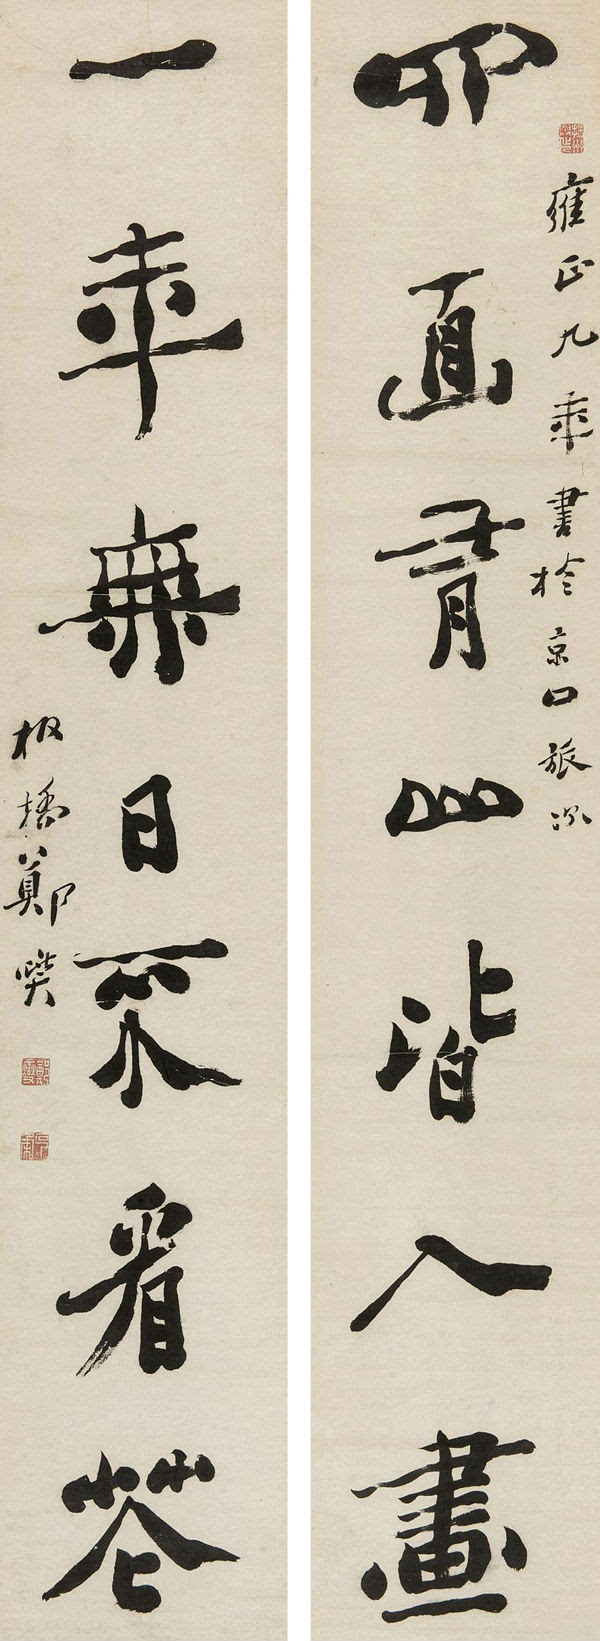 雍正九年書於京口旅次
四面有山皆入畫
一年無日不看花
板橋鄭燮